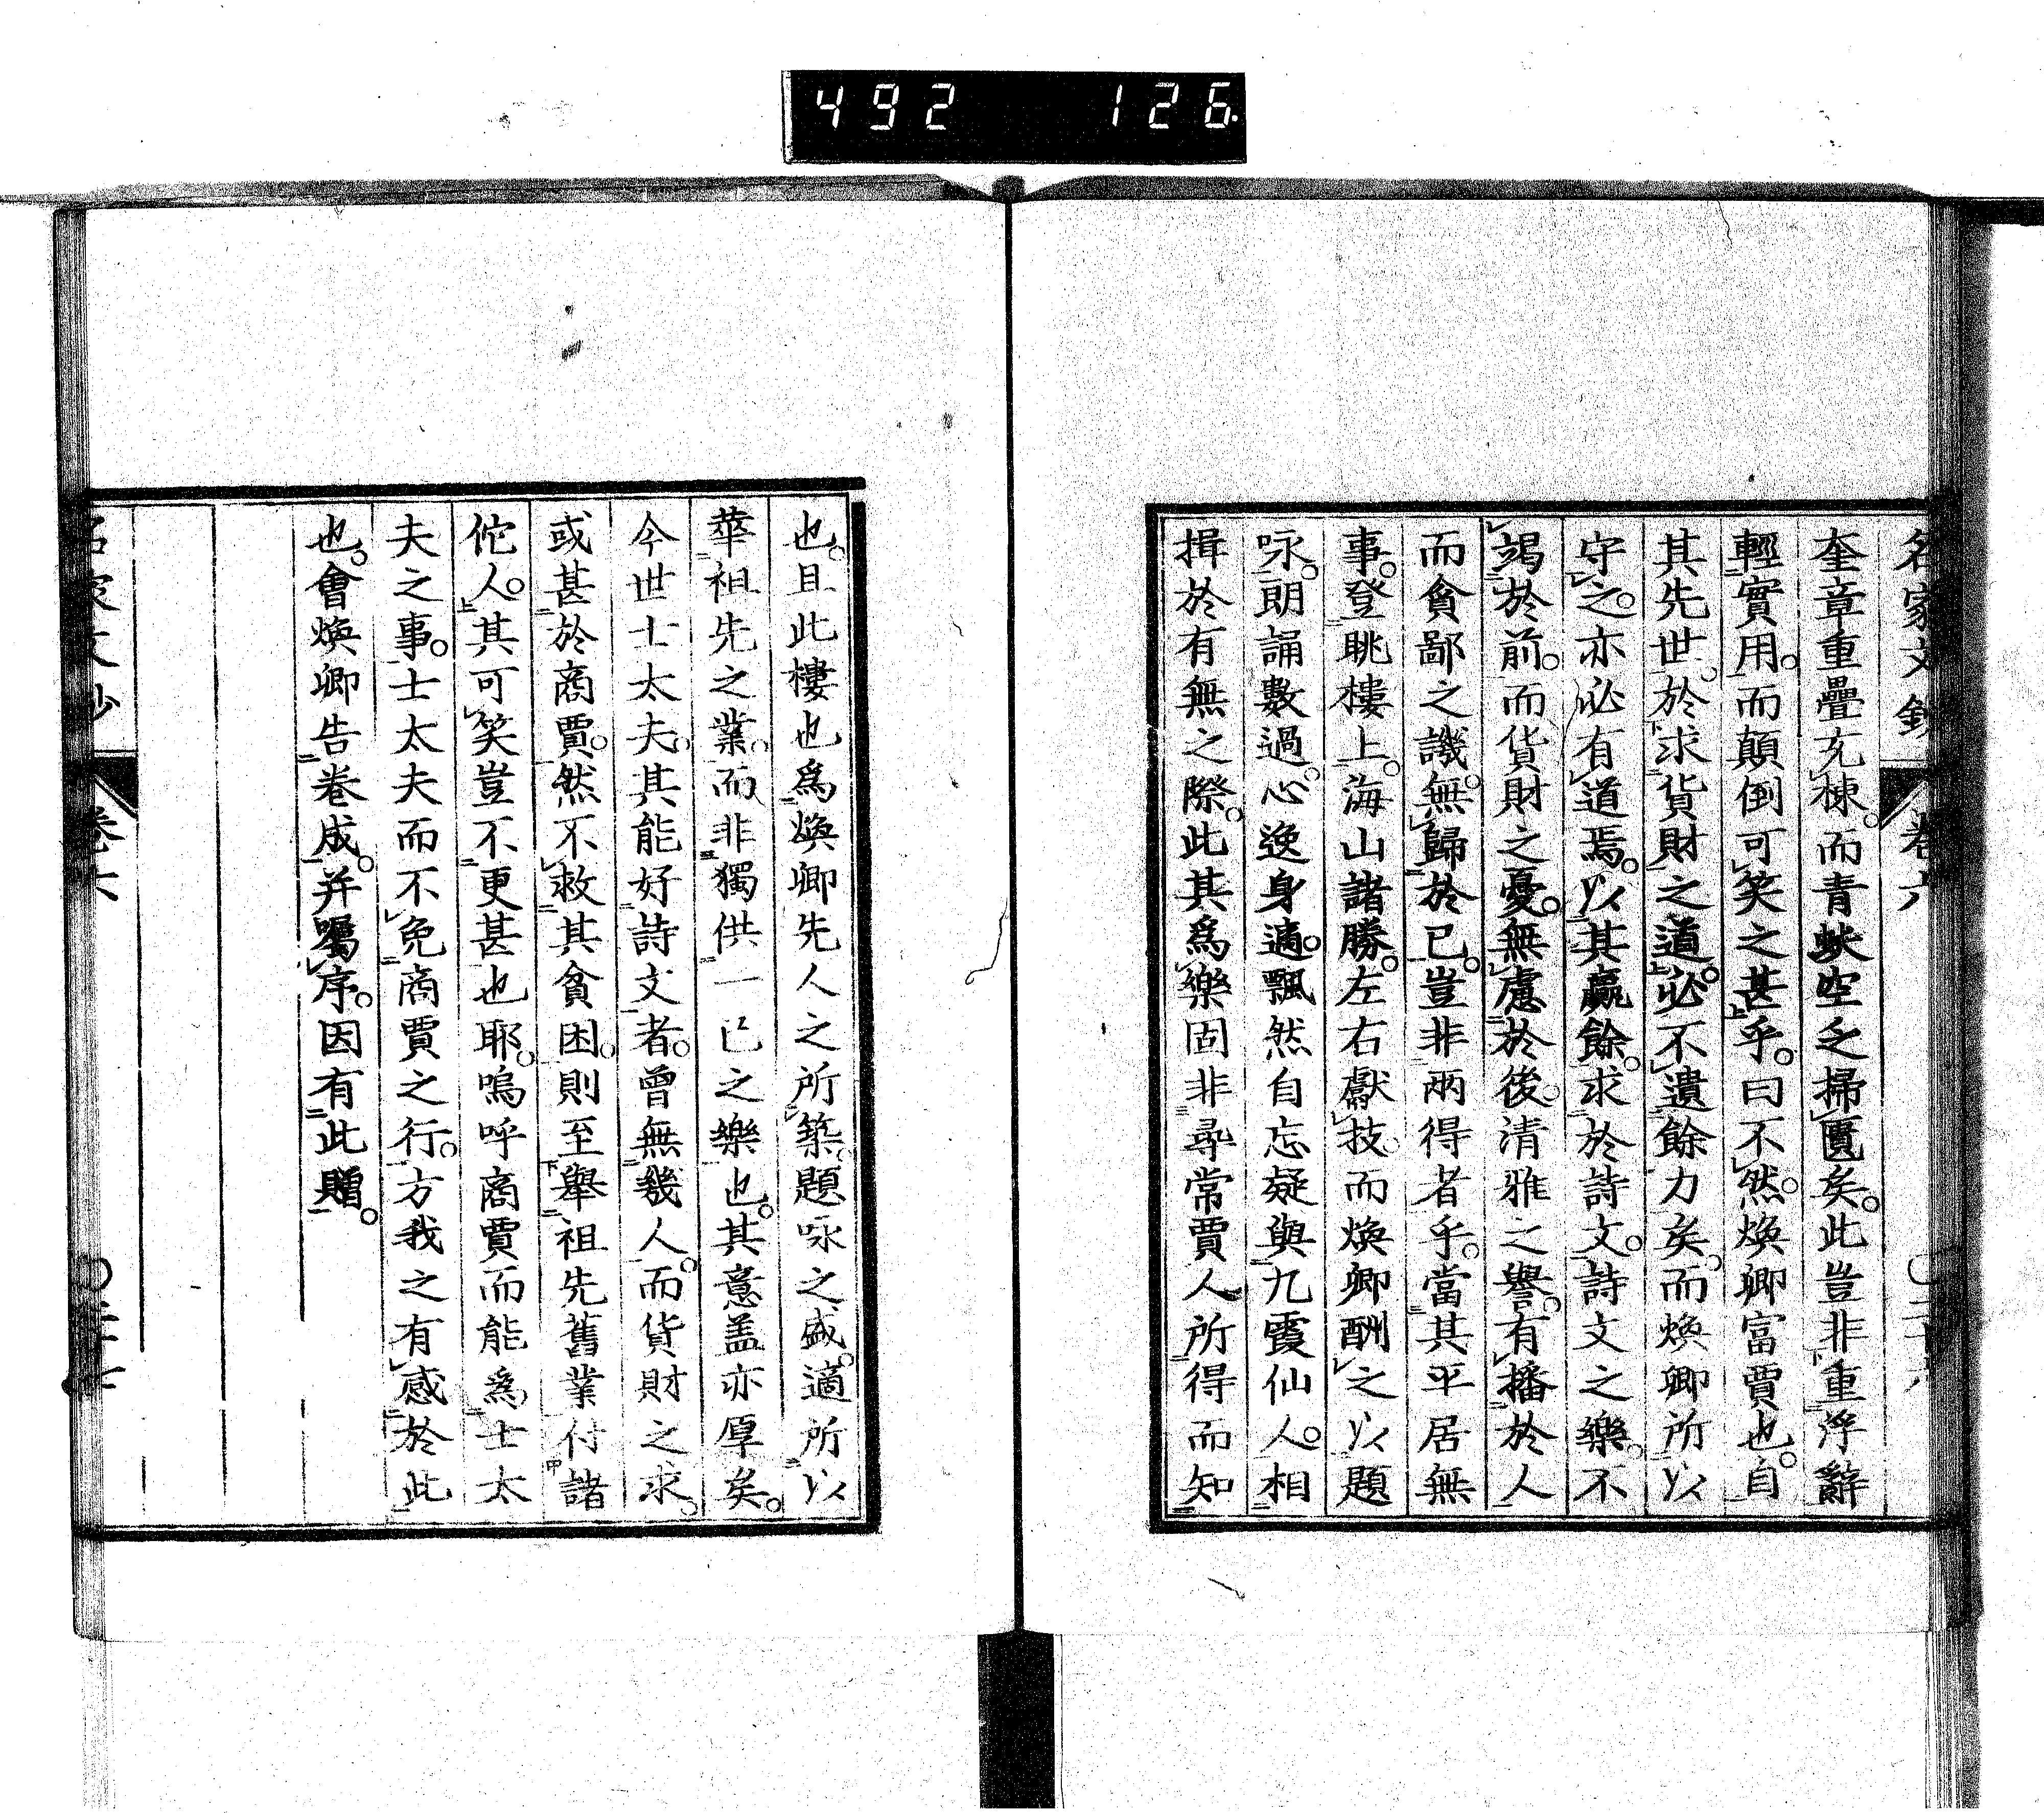 492 126
名家文鈔 卷六
奎章重疊充棟。而青蚨空乏掃匱矣。此豈非重浮辭
輕實用。而顛倒可笑之甚乎。曰不然。煥卿富賈也。自
其先世。於求貨財之道。必不遺餘力矣。而煥卿所以
守之。亦必有道焉。以其贏餘。求於詩文。詩文之樂。不
竭於前。而貨財之憂。無慮於後。清雅之譽。有播於人
而貪鄙之譏。無歸於己。豈非兩得者乎。當其平居無
事。登眺樓上。海山諸勝。左右獻技。而煥卿酬之以題
咏。朗誦數過。心逸身適。飄然自忘疑與九霞仙人。相
揖於有無之際。此其爲樂固非尋常賈人所得而知
也。且此樓也爲煥卿先人之所築。題咏之盛。適所以
華祖先之業。而非獨供一己之樂也。其意盖亦厚矣。
今世士太夫。其能好詩文者。曾無幾人。而貨財之求。
或甚於商賈。然不救其貧困。則至舉祖先舊業付諸
佗人。其可笑豈不更甚也耶。嗚呼商賈而能爲士太
夫之事。士太夫而不免商賈之行。方我之有感於此
也。會煥卿告卷成。并囑序。因有此贈。
名家文鈔 卷六